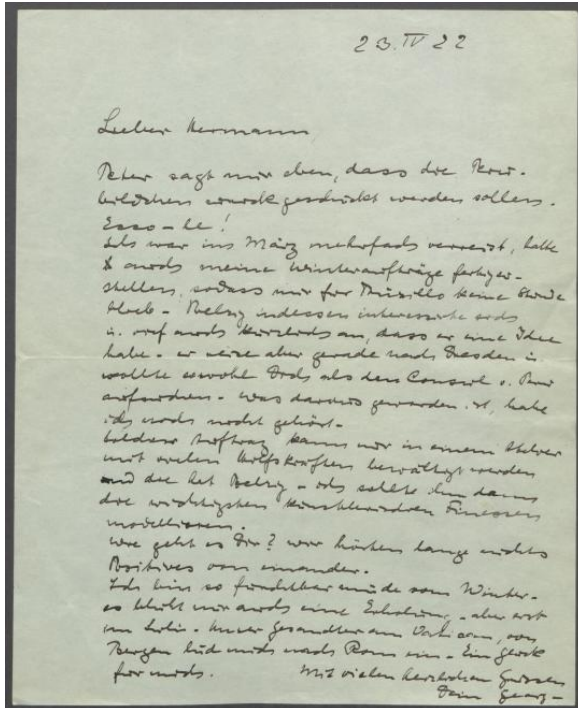 23. IV 22
Lieber Hermann
Peter sagt mir eben, dass die Peru-
bildchen zurückgeschickt werden sollen.
Ecco-le!
Ich war im März mehrfach verreist, hatte
auch meine Winteraufträge fertigzu-
stellen, sodass mir für Truxillo keine Stunde
blieb. Belzig indessen interessirte sich
u. rief mich kürzlich an, dass er eine Idee
habe - er reise aber gerade nach Dresden u.
wollte sowohl Dich als den Consul v. Peru
aufsuchen - was daraus geworden ist, habe
ich noch nicht gehört.
Auftrag kann nur in einem Atelier
mit vielen Hilfskräften bewältigt werden
und die hat Belzig - ich sollte ihm dann
die wichtigsten künstlerischen Finessen
modellieren.
Wie geht es Dir? wir hörten lange nichts
Positives von einander.
Ich bin so furchtbar müde vom Winter -
es blüht mir auch eine Erholung, - aber erst
im Juli. - Unser Gesandter am Vatican, von
Bergen lud mich nach Rom ein - Ein Glück
für mich.
Mit vielen herzlichen Grüssen
Dein Georg -